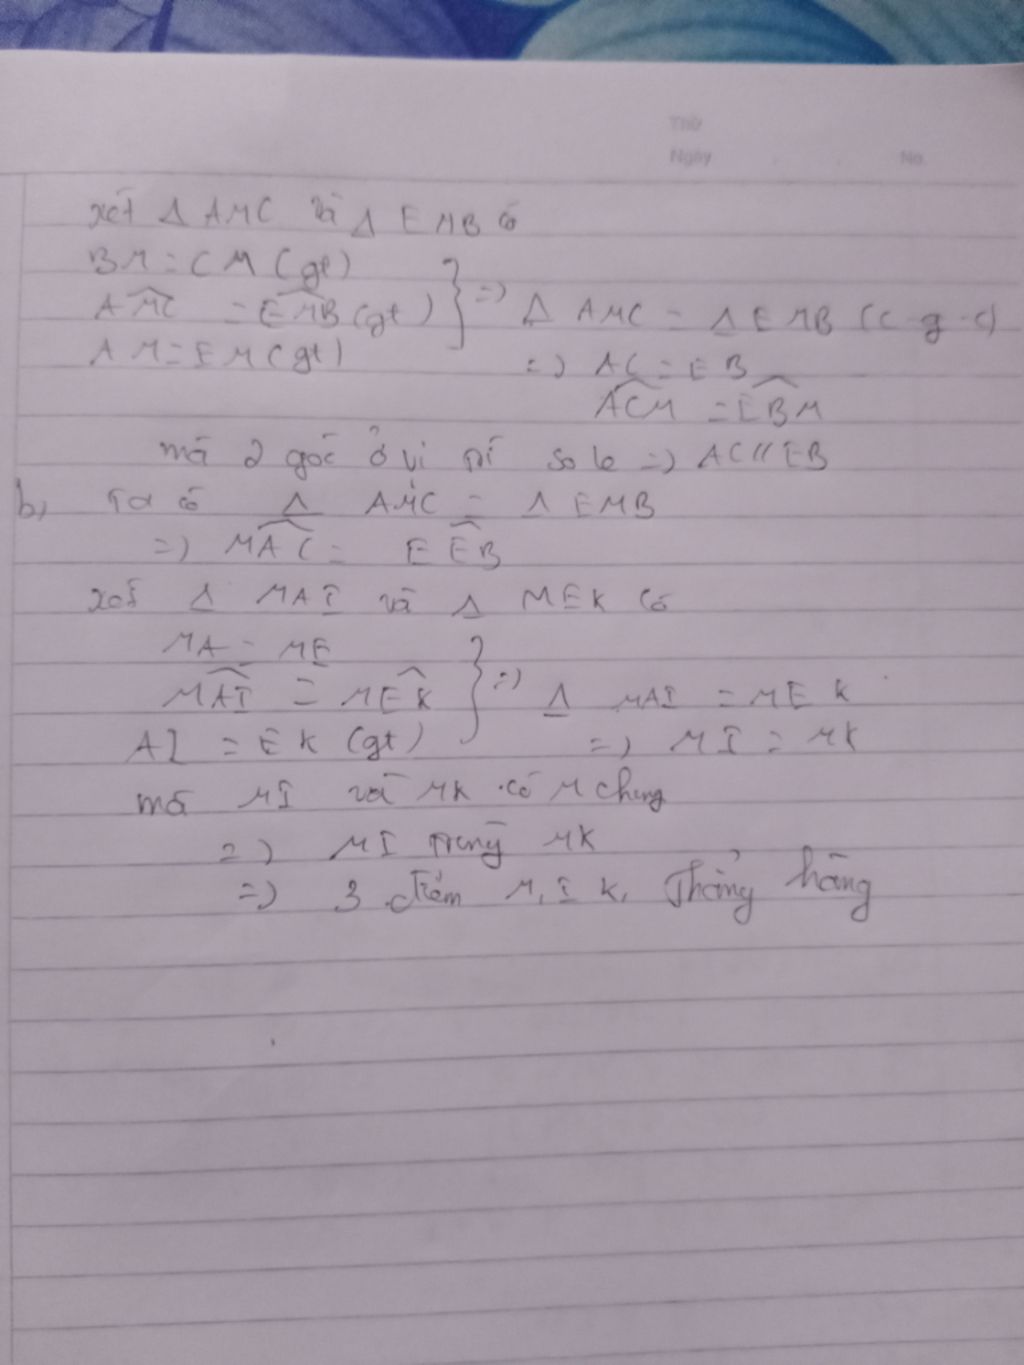 Thứ
Ngày No.
xét Δ AMC và Δ EMB có
BM = CM (gt)
AMC = EMB (gt) } => Δ AMC = Δ EMB (c-g-c)
AM = EM (gt) => AC = EB
ACM = EBM
mà 2 góc ở vị trí so le => AC // EB
b, Ta có Δ AMC = Δ EMB
=> MAC = EEB
xét Δ MAI và Δ MEK có
MA = ME
MAI = MEK } => Δ MAI = MEK
AI = EK (gt) => MI = MK
mà MI và MK có M chung
=> MI trùng MK
=> 3 điểm M, I K, Thẳng hàng